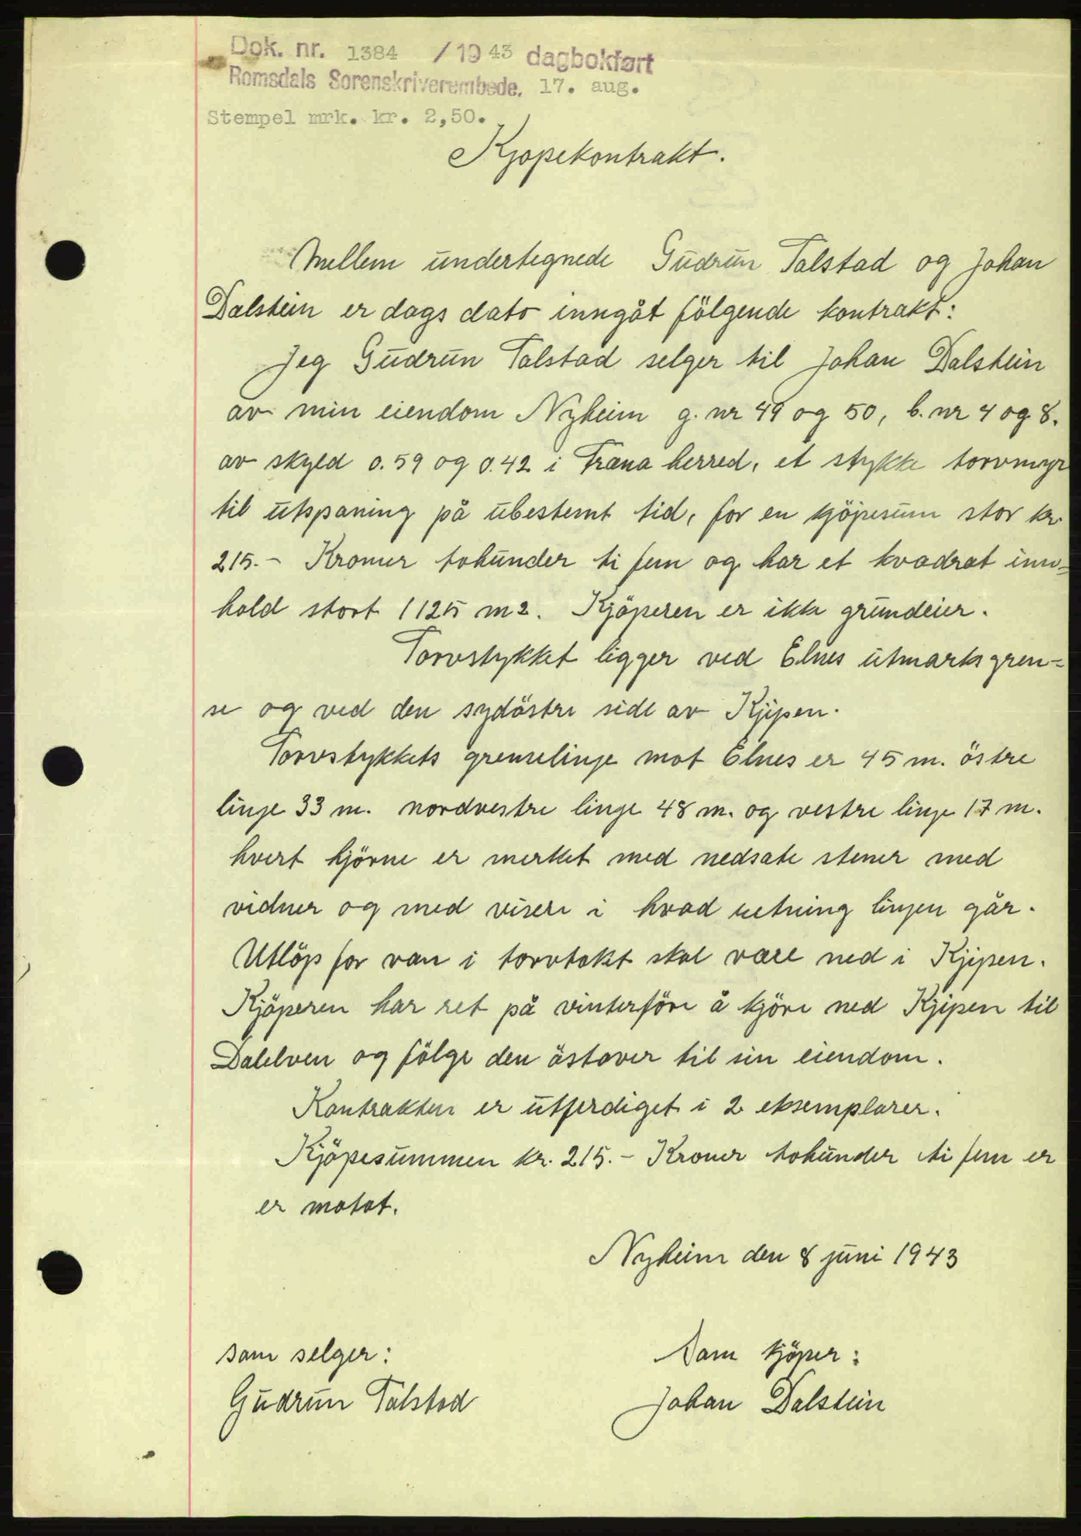 Dok. nr. 1384 / 1943 dagbokført
Romsdals Sorenskriverembede, 17. aug.
Stempel mrk. kr. 2,50.
Kjøpekontrakt.
Mellem undertegnede Gudrun Talstad og Johan
Dalstein er dags dato inngåt fölgende kontrakt:
Jeg Gudrun Talstad selger til Johan Dalstein
av min eiendom Nyheim g. nr 49 og 50, b. nr 4 og 8.
av skyld 0.59 og 0.42 i Fræna herred, et stykke torvmyr
til utspaning på ubestemt tid, for en kjöpesum stor kr.
215.- Kroner tohunder ti fem og har et kvadrat inn=
hold stort 1125 m2. Kjöperen er ikke grundeier.
Torvstykket ligger ved Elnes utmarksgren=
se og ved den sydöstre side av Kjipen.
Torvstykkets grenselinje mot Elnes er 45 m. östre
linje 33 m. nordvestre linje 48 m. og vestre linje 17 m.
hvert hjörne er merket med nedsate stener med
vidner og med visere i hvad retning linjen går.
Utlöp for van i torvtakt skal være ned i Kjipen.
Kjöperen har ret på vinterföre å kjöre ned Kjipen til
Dalelven og fölge den östover til sin eiendom.
Kontrakten er utferdiget i 2 eksemplarer.
Kjöpesummen kr. 215.- Kroner tohunder ti fem er
er motat.
Nyheim den 8 juni 1943
som selger:
Som kjöper:
Gudrun Talstad
Johan Dalstein